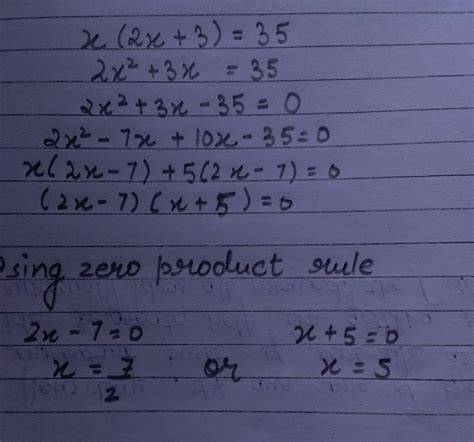 x (2x + 3) = 35
2x² + 3x = 35
2x² + 3x - 35 = 0
2x² - 7x + 10x - 35 = 0
x(2x - 7) + 5(2x - 7) = 0
(2x - 7) (x + 5) = 0
Using zero product rule
2x - 7 = 0 x + 5 = 0
x = 7/2 or x = 5